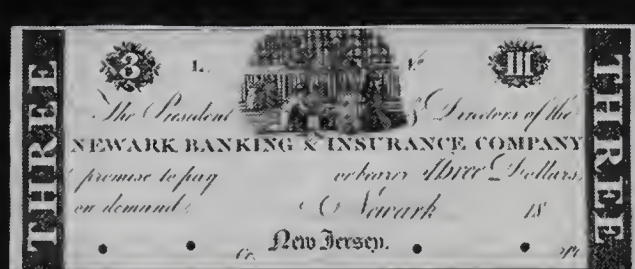 THREE
3 L. No III
The President & Directors of the
NEWARK BANKING & INSURANCE COMPANY
promise to pay or bearer Three Dollars,
on demand. Newark 18
New Jersey.
THREE